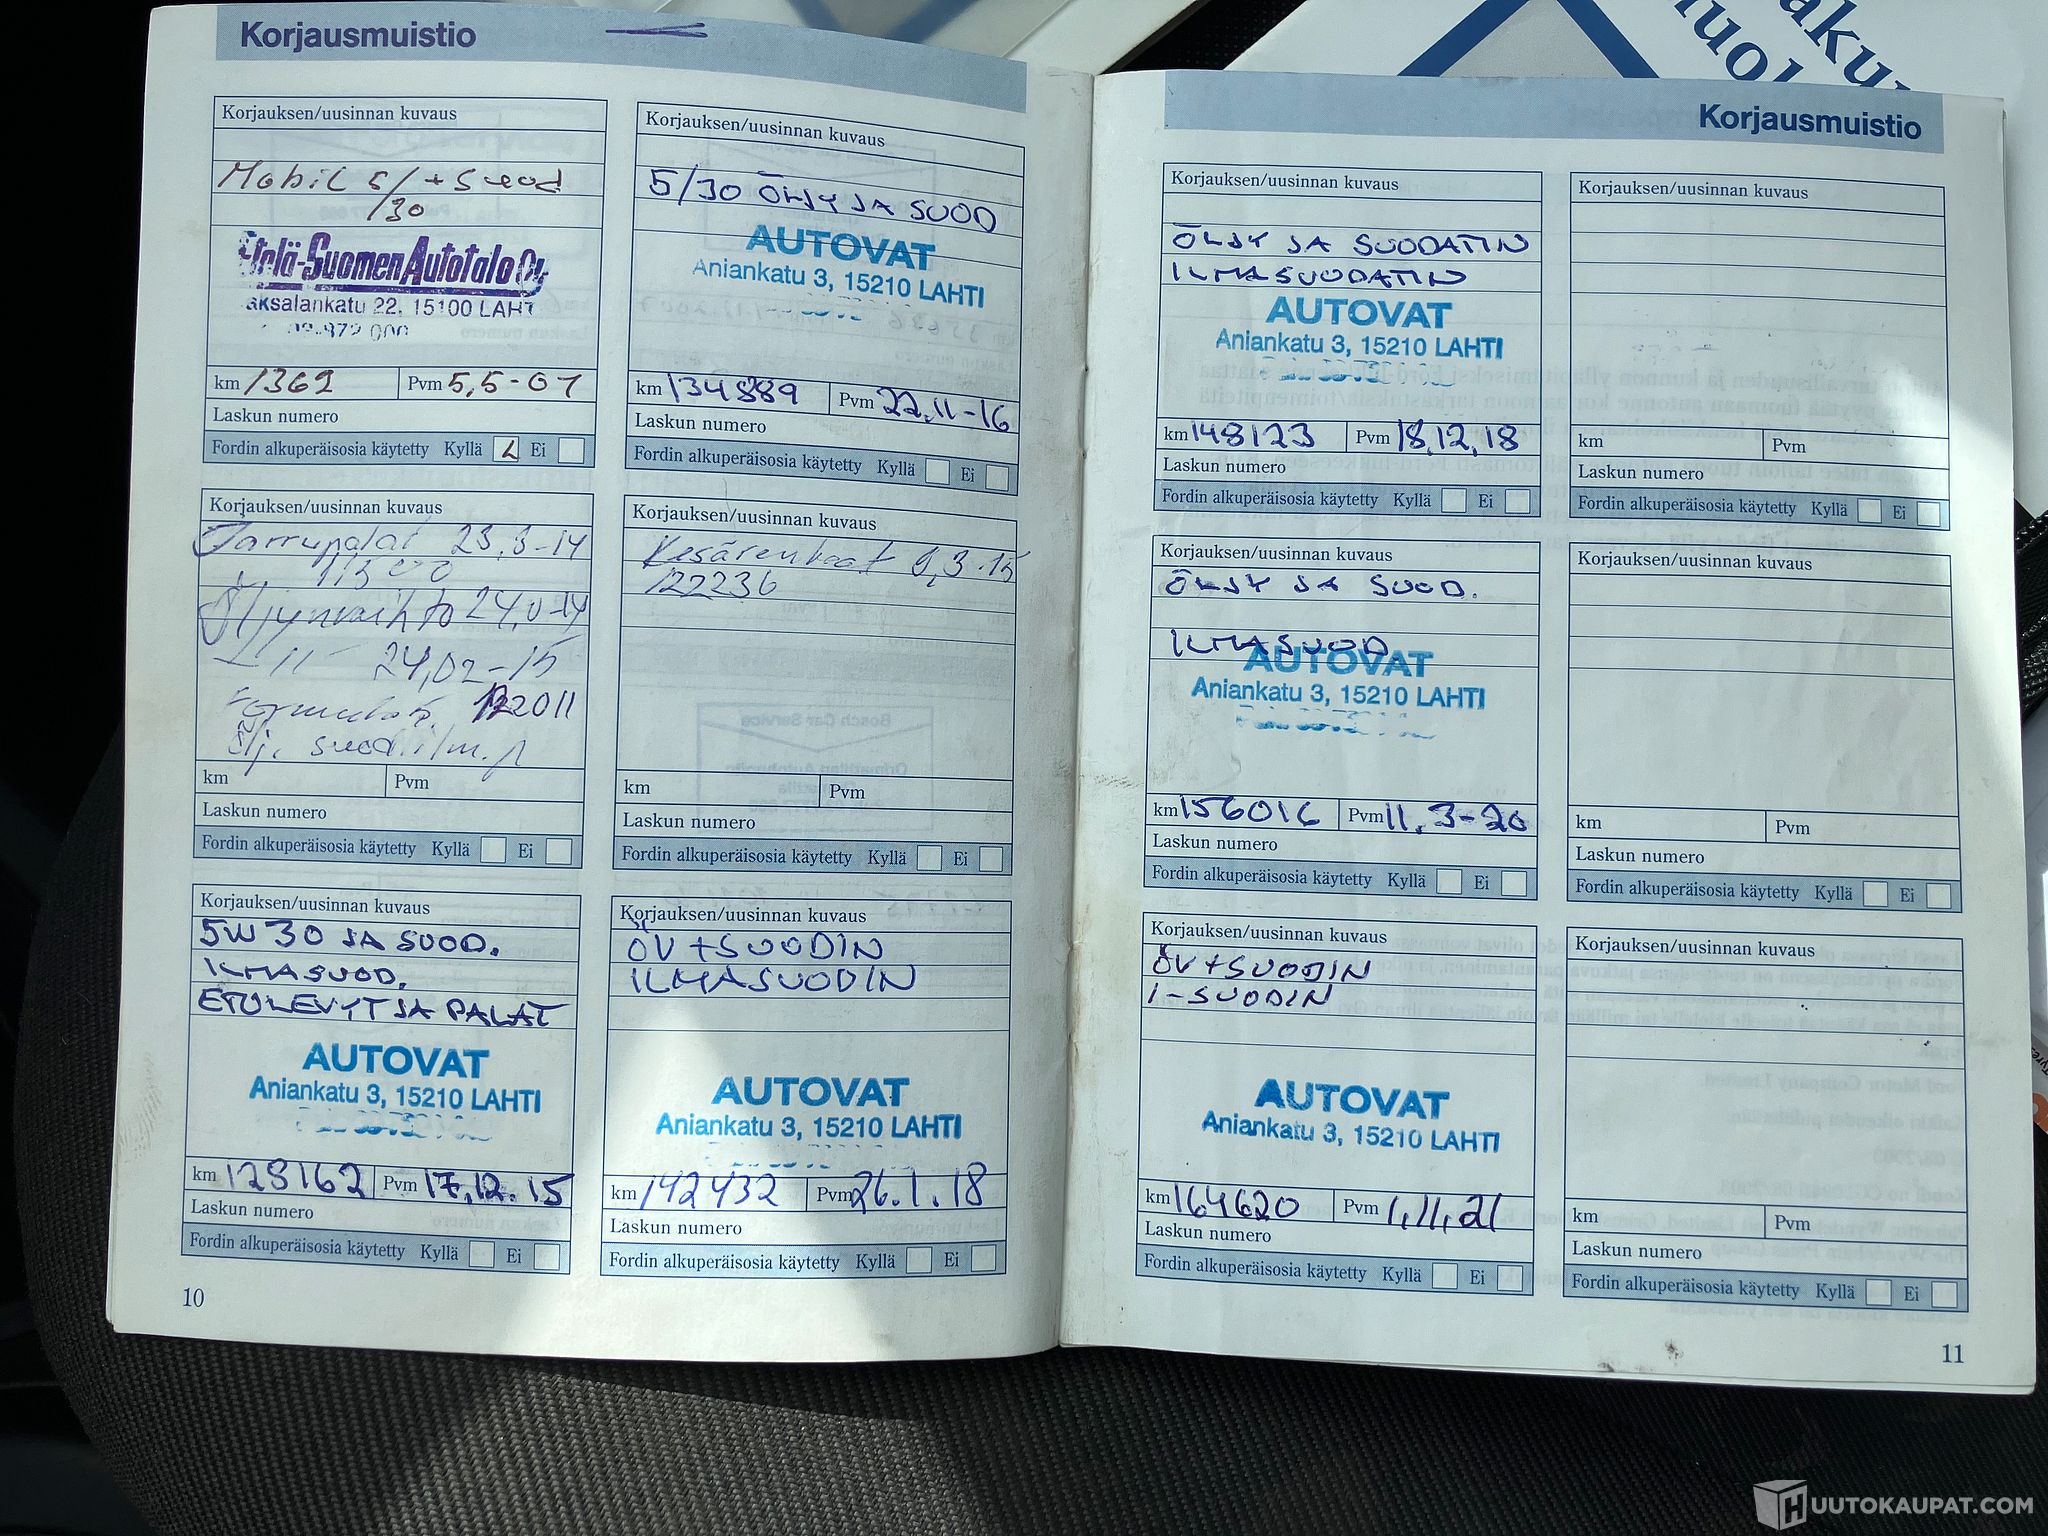 Korjausmuistio
Korjauksen/uusinnan kuvaus
Mobil 5/ + Suod
/30
Etelä-Suomen Autotalo Oy
aksalankatu 22, 15100 LAHT
km 1369 Pvm 5,5-07
Laskun numero
Fordin alkuperäisosia käytetty Kyllä Ei
Korjauksen/uusinnan kuvaus
Jarrupalat 23,3-14
Öljynvaihto 24,0-14
-11- 24,02-15
122011
Korjauksen/uusinnan kuvaus
km Pvm
Laskun numero
Fordin alkuperäisosia käytetty Kyllä Ei
Korjauksen/uusinnan kuvaus
5W30 JA SUOD.
ILMASUOD.
ETULEVYT JA PALAT
AUTOVAT
Aniankatu 3, 15210 LAHTI
km 128162 Pvm 17,12.15
Laskun numero
Fordin alkuperäisosia käytetty Kyllä Ei
10
Korjauksen/uusinnan kuvaus
5/30 ÖLJY JA SUOD
AUTOVAT
Aniankatu 3, 15210 LAHTI
km 134889 Pvm 22,11-16
Laskun numero
Fordin alkuperäisosia käytetty Kyllä Ei
Korjauksen/uusinnan kuvaus
Kesärenkaat 9,3.15
122236
km Pvm
Laskun numero
Fordin alkuperäisosia käytetty Kyllä Ei
Korjauksen/uusinnan kuvaus
ÖV + SUODIN
ILMASUODIN
AUTOVAT
Aniankatu 3, 15210 LAHTI
km 142432 Pvm 26.1.18
Laskun numero
Fordin alkuperäisosia käytetty Kyllä Ei
Korjausmuistio
Korjauksen/uusinnan kuvaus
ÖLJY JA SUODATIN
ILMASUODATIN
AUTOVAT
Aniankatu 3, 15210 LAHTI
km 148123 Pvm 18,12,18
Laskun numero
Fordin alkuperäisosia käytetty Kyllä Ei
Korjauksen/uusinnan kuvaus
ÖLJY JA SUOD.
ILMASUOD
AUTOVAT
Aniankatu 3, 15210 LAHTI
km 156016 Pvm 11.3-20
Laskun numero
Fordin alkuperäisosia käytetty Kyllä Ei
Korjauksen/uusinnan kuvaus
ÖV + SUODIN
I-SUODIN
AUTOVAT
Aniankatu 3, 15210 LAHTI
km 164620 Pvm 1,11,21
Laskun numero
Fordin alkuperäisosia käytetty Kyllä Ei
Korjauksen/uusinnan kuvaus
km Pvm
Laskun numero
Fordin alkuperäisosia käytetty Kyllä Ei
Korjauksen/uusinnan kuvaus
km Pvm
Laskun numero
Fordin alkuperäisosia käytetty Kyllä Ei
Korjauksen/uusinnan kuvaus
km Pvm
Laskun numero
Fordin alkuperäisosia käytetty Kyllä Ei
11
HUUTOKAUPAT.COM